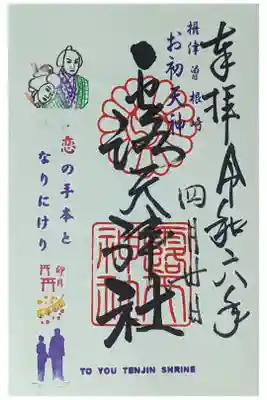 奉拝
令和六年
四月廿日
摂津曽根崎
お初天神
露天神社
恋の手本と
なりにけり
卯月
TO YOU TENJIN SHRINE